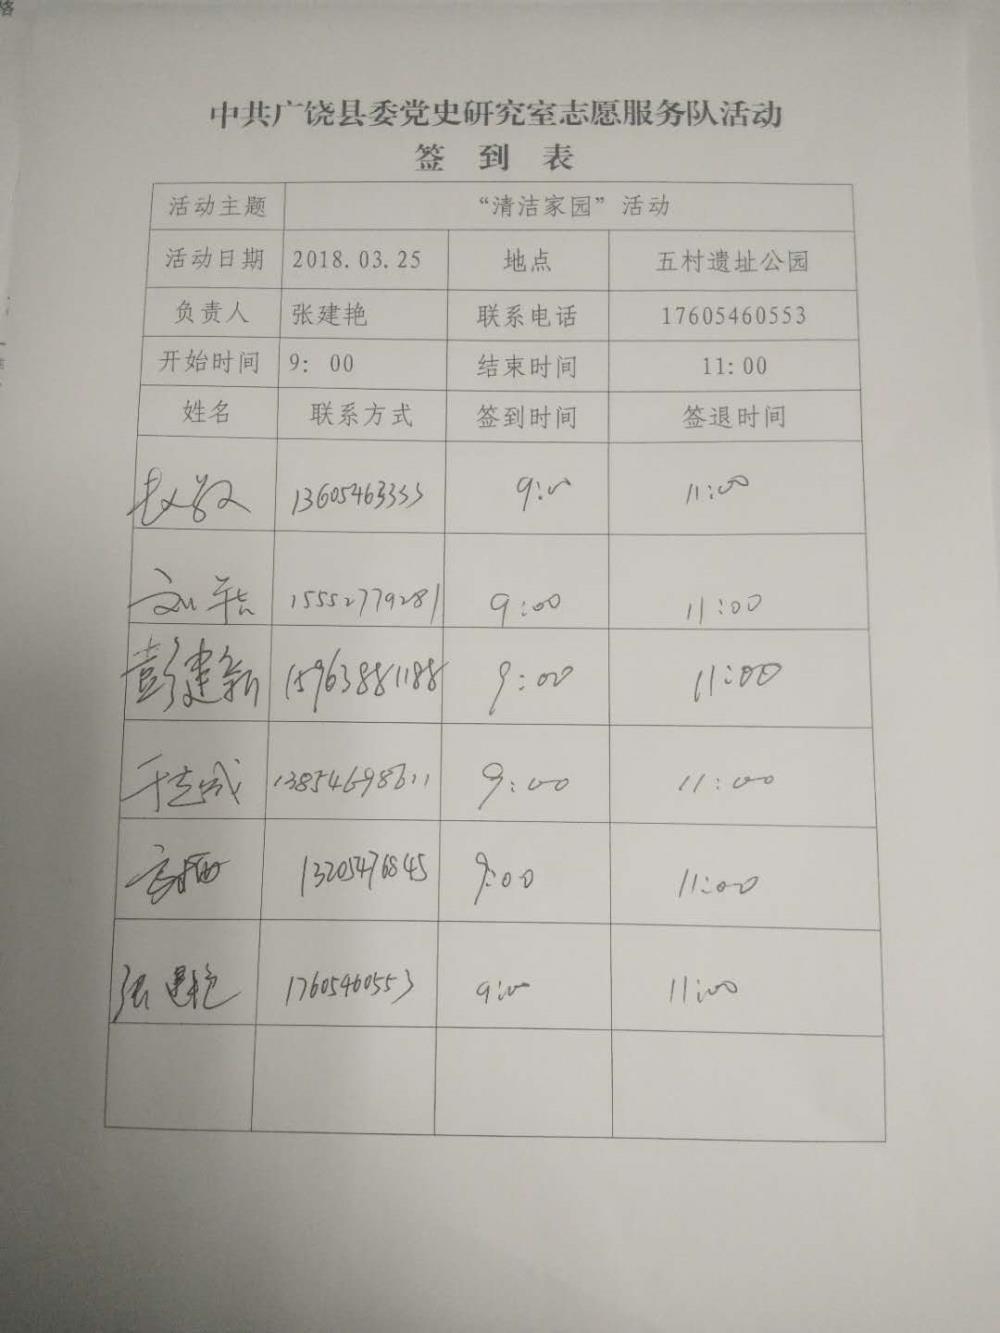 中共广饶县委党史研究室志愿服务队活动
签 到 表
活动主题 “清洁家园”活动
活动日期 2018.03.25 地点 五村遗址公园
负责人 张建艳 联系电话 17605460553
开始时间 9: 00 结束时间 11:00
姓名 联系方式 签到时间 签退时间
赵敏 13605463333 9:00 11:00
15552779281 9:00 11:00
彭建新 15963881188 9:00 11:00
13854698611 9:00 11:00
13205476845 9:00 11:00
张建艳 17605460553 9:00 11:00